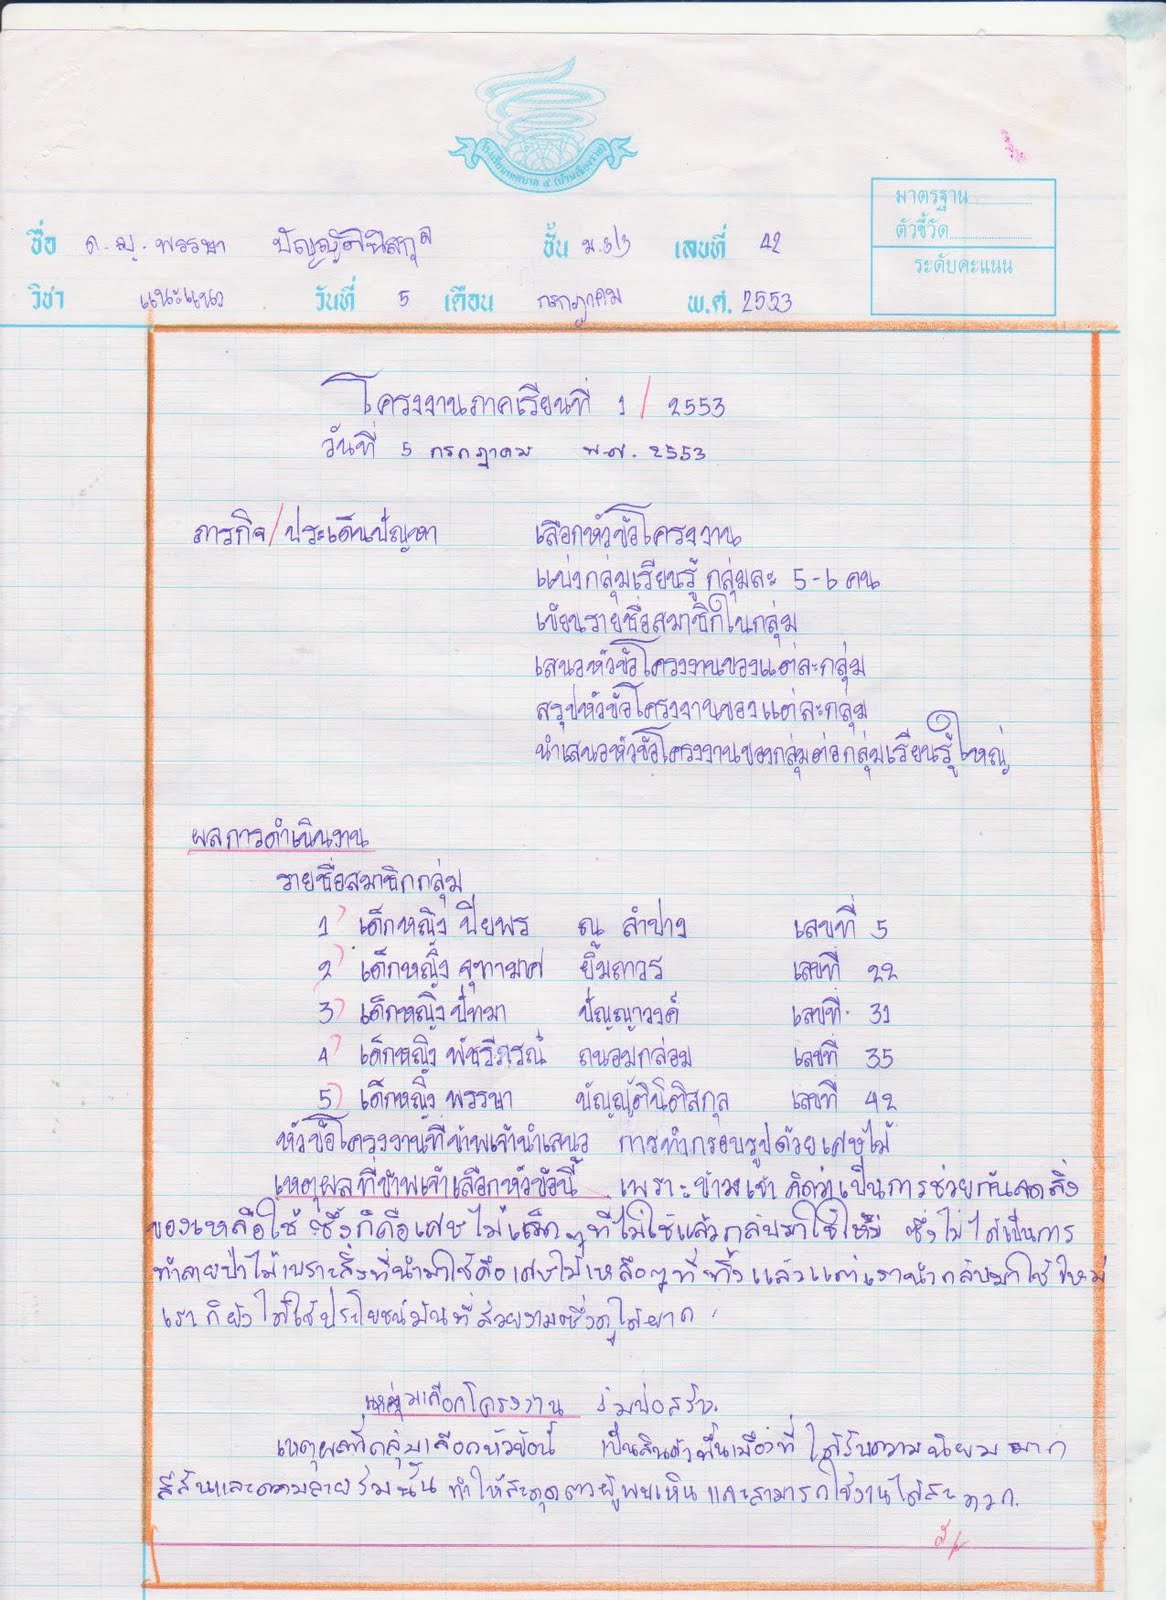 โรงเรียนเทศบาล ๔
มาตรฐาน
ตัวชี้วัด
ระดับคะแนน
ชื่อ ด.ญ. พรรษา ปัญญัตินิติสกุล ชั้น ม.3/3 เลขที่ 42
วิชา แนะแนว วันที่ 5 เดือน กรกฎาคม พ.ศ. 2553
โครงงานภาคเรียนที่ 1 / 2553
วันที่ 5 กรกฎาคม พ.ศ. 2553
ภารกิจ/ประเด็นปัญหา เลือกหัวข้อโครงงาน
แบ่งกลุ่มเรียนรู้ กลุ่มละ 5-6 คน
เขียนรายชื่อสมาชิกในกลุ่ม
เสนอหัวข้อโครงงานของแต่ละกลุ่ม
สรุปหัวข้อโครงงานของแต่ละกลุ่ม
นำเสนอหัวข้อโครงงานของกลุ่มต่อกลุ่มเรียนรู้ใหญ่
ผลการดำเนินงาน
รายชื่อสมาชิกกลุ่ม
1) เด็กหญิง ปิยพร ณ ลำปาง เลขที่ 5
2) เด็กหญิง จุฑามาศ ยิ้มถาวร เลขที่ 22
3) เด็กหญิง ปัทมา ปัญญาวงค์ เลขที่ 31
4) เด็กหญิง พัชรีภรณ์ ถนอมกล่อม เลขที่ 35
5) เด็กหญิง พรรษา บัญญัตินิติสกุล เลขที่ 42
หัวข้อโครงงานที่ข้าพเจ้านำเสนอ การทำกรอบรูปด้วยเศษไม้
เหตุผลที่ข้าพเจ้าเลือกหัวข้อนี้ เพราะข้าพเจ้า คิดว่าเป็นการช่วยกันลดสิ่ง
ของเหลือใช้ ซึ่งก็คือเศษไม้เล็กๆที่ไม่ใช้แล้วกลับมาใช้ใหม่ ซึ่งไม่ได้เป็นการ
ทำลายป่าไม้เพราะสิ่งที่นำมาใช้คือเศษไม้เหลือๆที่ทิ้งแล้วแต่เรานำกลับมาใช้ใหม่
เราก็ยังได้ใช้ประโยชน์มันที่สวยงามซึ่งดูได้ยาก
กลุ่มเลือกโครงงาน ร่มบ่อสร้าง
เหตุผลที่กลุ่มเลือกหัวข้อนี้ เป็นสินค้าพื้นเมืองที่ได้รับความนิยมมาก
สีสันและความลายร่มนั้น ทำให้สะดุดตาผู้พบเห็น และสามารถใช้งานได้สะดวก.